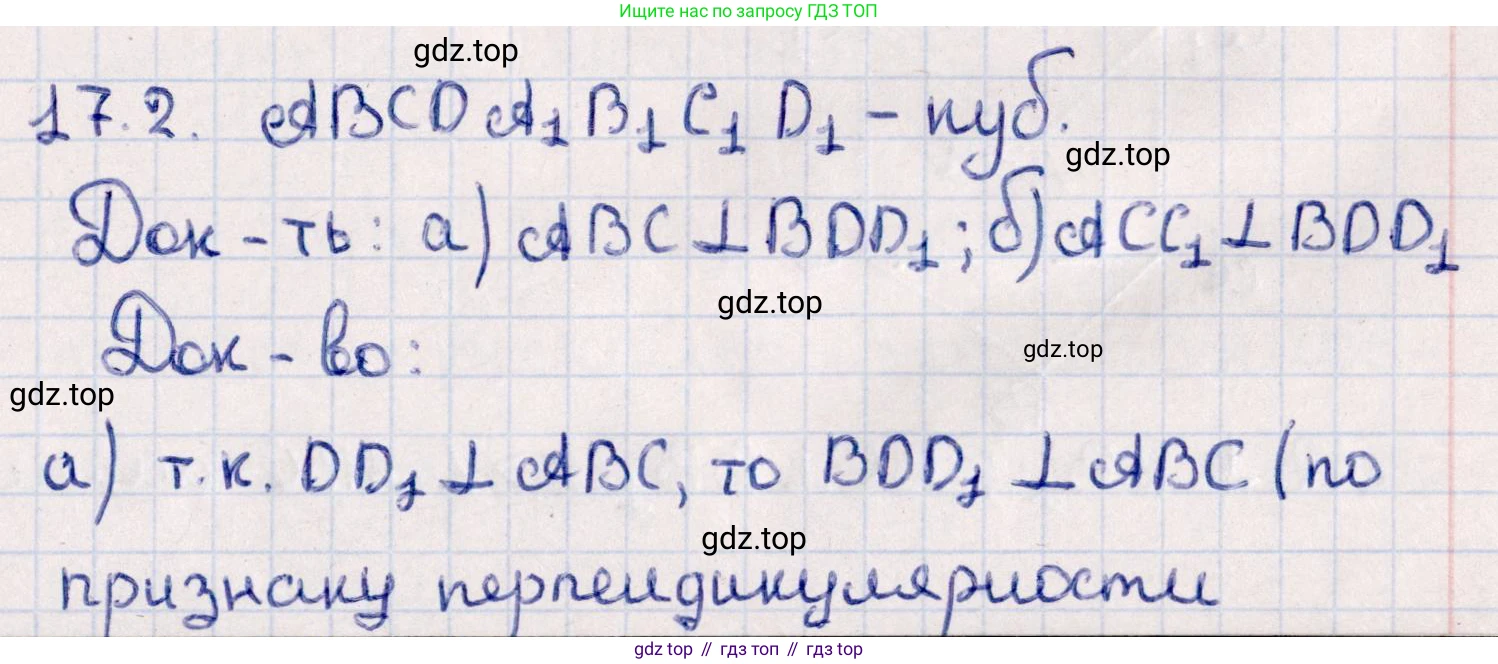 Ищите нас по запросу ГДЗ ТОП
gdz.top
17.2. ABCDA₁B₁C₁D₁ - куб.
gdz.top
Док-ть: а) ABC ⊥ BDD₁; б) ACC₁ ⊥ BDD₁
gdz.top
Док-во:
gdz.top
gdz.top
а) т.к. DD₁ ⊥ ABC, то BDD₁ ⊥ ABC (по
gdz.top
признаку перпендикулярности
gdz top // гдз топ // gdz top